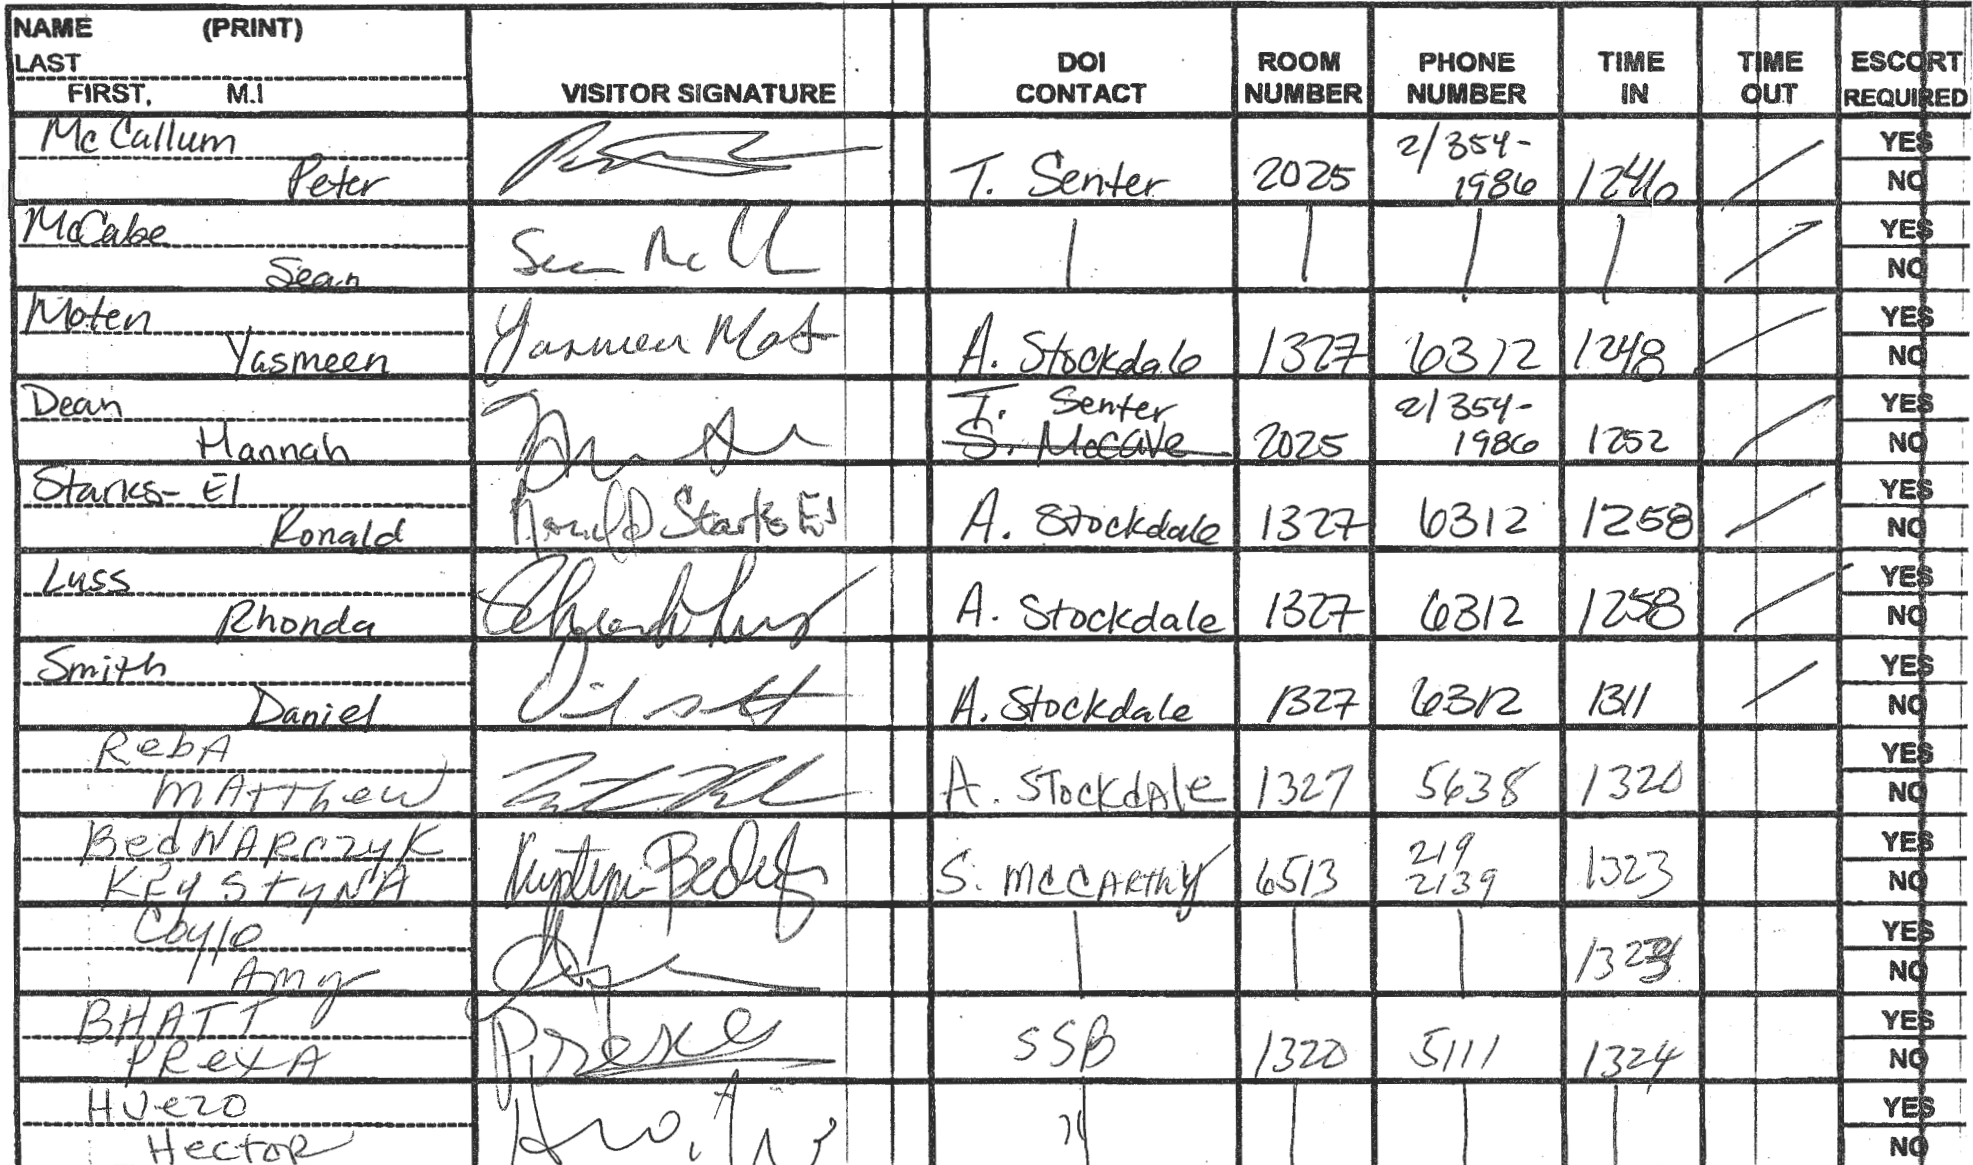 NAME (PRINT)
LAST
FIRST, M.I
VISITOR SIGNATURE
DOI
CONTACT
ROOM
NUMBER
PHONE
NUMBER
TIME
IN
TIME
OUT
ESCORT
REQUIRED
McCallum
Peter
T. Senter
2025
2/354-
1986
1246
YES
NO
McCabe
Sean
Sean Mc
YES
NO
Moten
Yasmeen
Yasmeen Mot
A. Stockdale
1327
6312
1248
YES
NO
Dean
Hannah
T. Senter
S. McCave
2025
2/354-
1986
1252
YES
NO
Starks-El
Ronald
Ronald Starks El
A. Stockdale
1327
6312
1258
YES
NO
Luss
Rhonda
A. Stockdale
1327
6312
1258
YES
NO
Smith
Daniel
A. Stockdale
1327
6312
1311
YES
NO
RebA
MAtthew
A. STockdAle
1327
5638
1320
YES
NO
BedNARczyK
KRyStyNA
S. McCARthy
6513
219
2139
1323
YES
NO
Coyle
Amy
YES
NO
BHATT
PRexA
SSB
1320
5111
1324
YES
NO
HUezo
HectoR
YES
NO